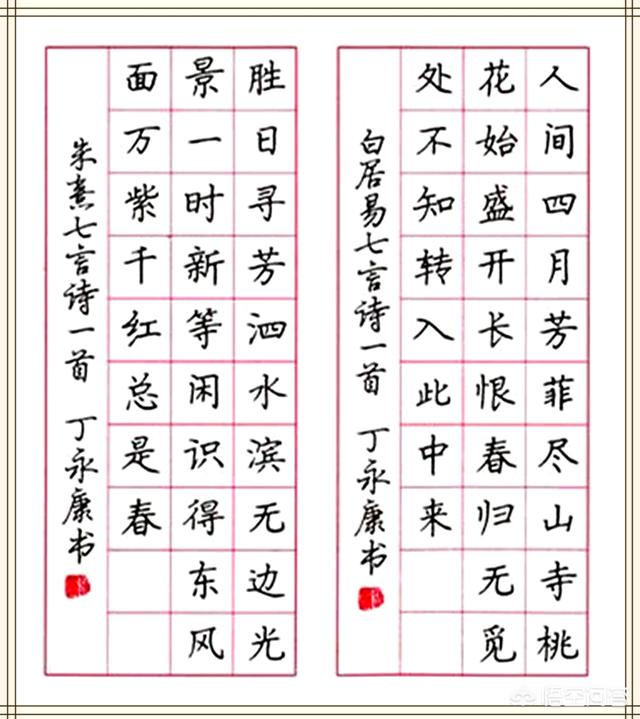 人间四月芳菲尽山寺桃
花始盛开长恨春归无觅
处不知转入此中来
白居易七言诗一首 丁永康书
胜日寻芳泗水滨无边光
景一时新等闲识得东风
面万紫千红总是春
朱熹七言诗一首 丁永康书
悟空问答